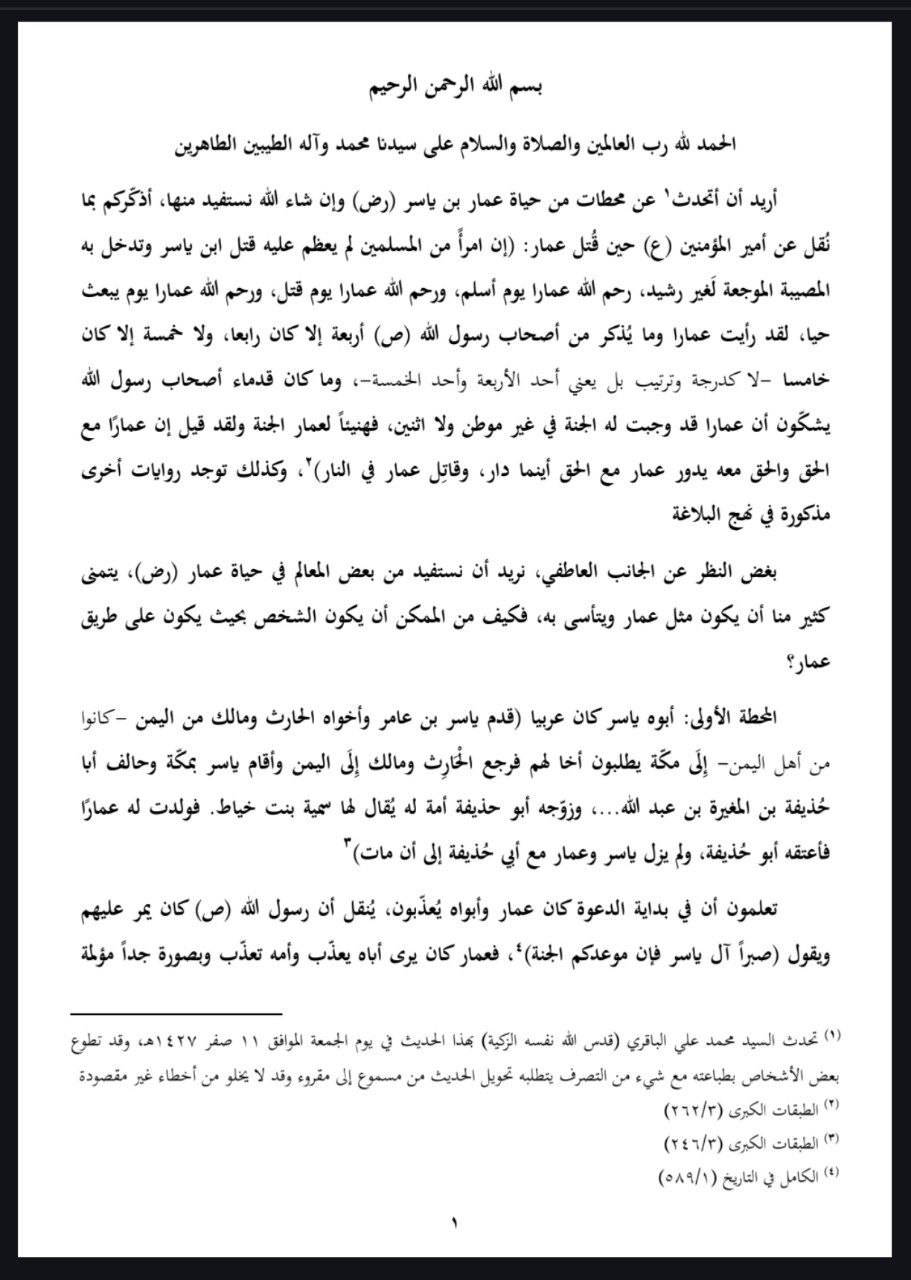 بسم الله الرحمن الرحيم
الحمد لله رب العالمين والصلاة والسلام على سيدنا محمد وآله الطيبين الطاهرين
أريد أن أتحدث١ عن محطات من حياة عمار بن ياسر (رض) وإن شاء الله نستفيد منها، أذكّركم بما
نُقل عن أمير المؤمنين (ع) حين قُتل عمار: (إن امرأً من المسلمين لم يعظم عليه قتل ابن ياسر وتدخل به
المصيبة الموجعة لَغير رشيد، رحم الله عمارا يوم أسلم، ورحم الله عمارا يوم قتل، ورحم الله عمارا يوم يبعث
حيا، لقد رأيت عمارا وما يُذكر من أصحاب رسول الله (ص) أربعة إلا كان رابعا، ولا خمسة إلا كان
خامسا –لا كدرجة وترتيب بل يعني أحد الأربعة وأحد الخمسة–، وما كان قدماء أصحاب رسول الله
يشكّون أن عمارا قد وجبت له الجنة في غير موطن ولا اثنين، فهنيئاً لعمار الجنة ولقد قيل إن عمارًا مع
الحق والحق معه يدور عمار مع الحق أينما دار، وقاتِل عمار في النار)٢، وكذلك توجد روايات أخرى
مذكورة في نهج البلاغة
بغض النظر عن الجانب العاطفي، نريد أن نستفيد من بعض المعالم في حياة عمار (رض)، يتمنى
كثير منا أن يكون مثل عمار ويتأسى به، فكيف من الممكن أن يكون الشخص بحيث يكون على طريق
عمار؟
المحطة الأولى: أبوه ياسر كان عربيا (قدم ياسر بن عامر وأخواه الحارث ومالك من اليمن –كانوا
من أهل اليمن– إِلَى مكّة يطلبون أخا لهم فرجع الْحَارِث ومالك إِلَى اليمن وأقام ياسر بمكّة وحالف أبا
حُذيفة بن المغيرة بن عبد الله...، وزوّجه أبو حذيفة أمة له يُقال لها سمية بنت خياط. فولدت له عمارًا
فأعتقه أبو حُذيفة، ولم يزل ياسر وعمار مع أبي حُذيفة إلى أن مات)٣
تعلمون أن في بداية الدعوة كان عمار وأبواه يُعذّبون، يُنقل أن رسول الله (ص) كان يمر عليهم
ويقول (صبراً آل ياسر فإن موعدكم الجنة)٤، فعمار كان يرى أباه يعذّب وأمه تعذّب وبصورة جداً مؤلمة
(١) تحدث السيد محمد علي الباقري (قدس الله نفسه الزكية) بهذا الحديث في يوم الجمعة الموافق ١١ صفر ١٤٢٧هـ، وقد تطوع
بعض الأشخاص بطباعته مع شيء من التصرف يتطلبه تحويل الحديث من مسموع إلى مقروء وقد لا يخلو من أخطاء غير مقصودة
(٢) الطبقات الكبرى (٢٦٢/٣)
(٣) الطبقات الكبرى (٢٤٦/٣)
(٤) الكامل في التاريخ (٥٨٩/١)
١